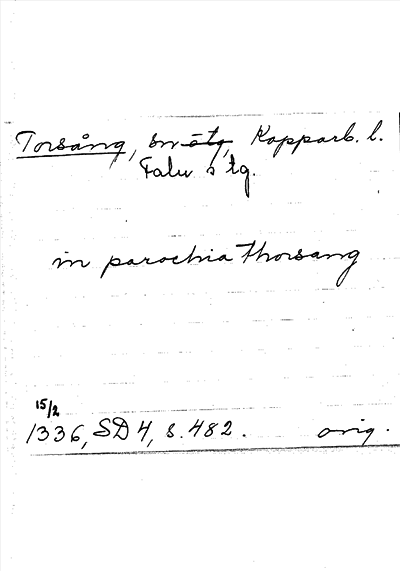 Torsång, sn o tg, Kopparb. l.
Falu s tg.
in parochia Thorsang
15/2
1336, SD 4, s. 482. orig.